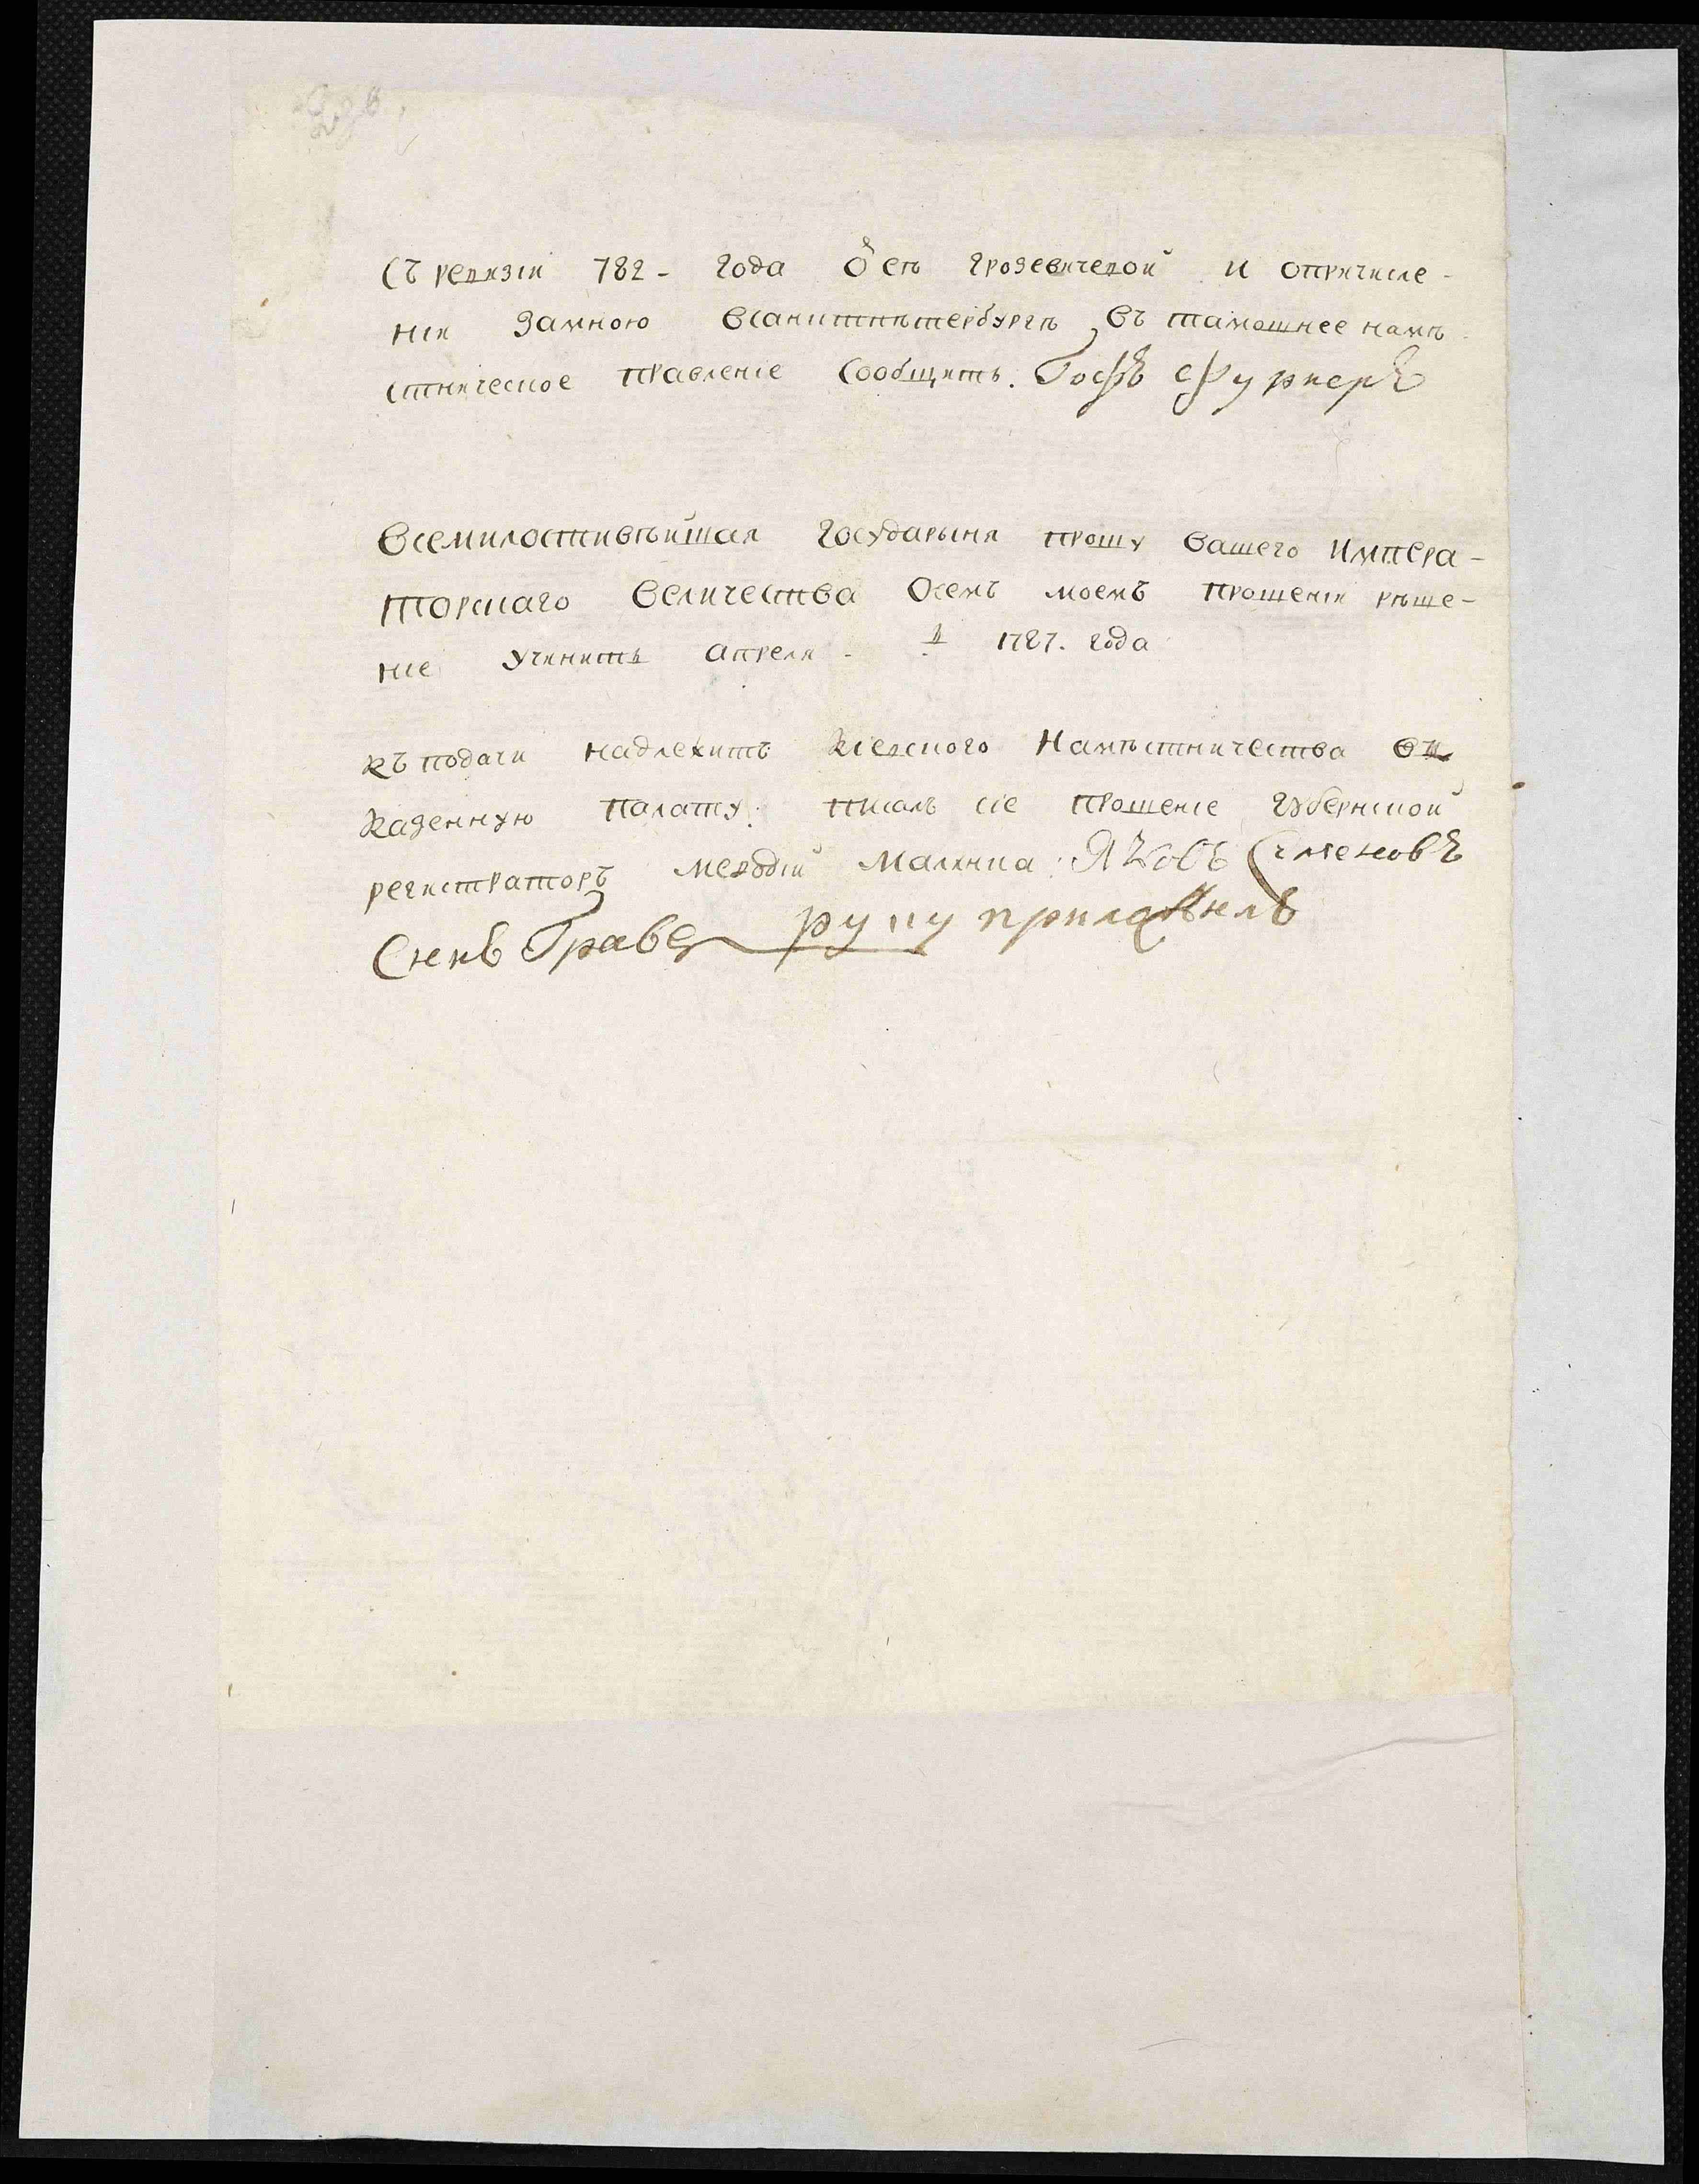 Съ ревизіи 782- года ѡ ей грозевичевой и опричисле-
ніи замною всанктпѣтербургѣ въ тамошнее намѣ
стническое правленіе сообщить. Гофъ фуриеръ
Всемилостивѣйшая Государыня прошу Вашего Импера-
торскаго Величества Осемъ моемъ прошеніи рѣше-
ніе учинить апреля - 1787. года
Къ подачи надлежитъ Кіевского Намѣстничества въ
Казенную Палату. писалъ сіе прошеніе губернской
регистраторъ меѳодій Малинка: Яковъ Семеновъ
Сынъ Граве руку приложилъ